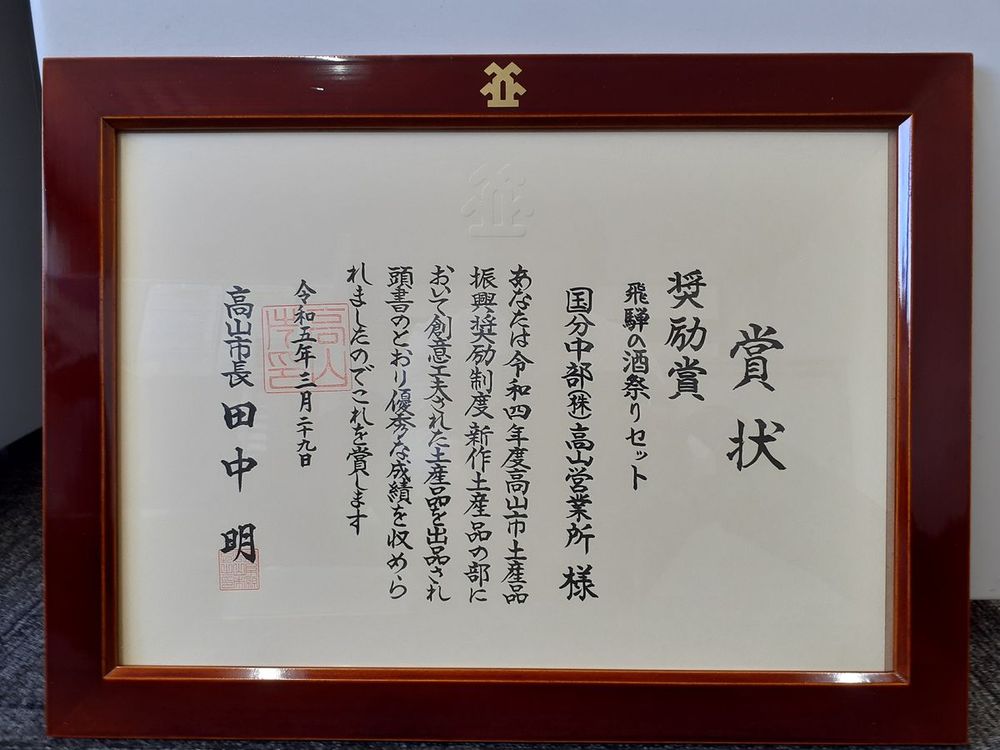 賞状
奨励賞
飛騨の酒祭りセット
国分中部(株)高山営業所 様
あなたは令和四年度高山市土産品
振興奨励制度 新作土産品の部に
おいて創意工夫された土産品を出品され
頭書のとおり優秀な成績を収めら
れましたのでこれを賞します
令和五年三月二十九日
高山市長 田中 明